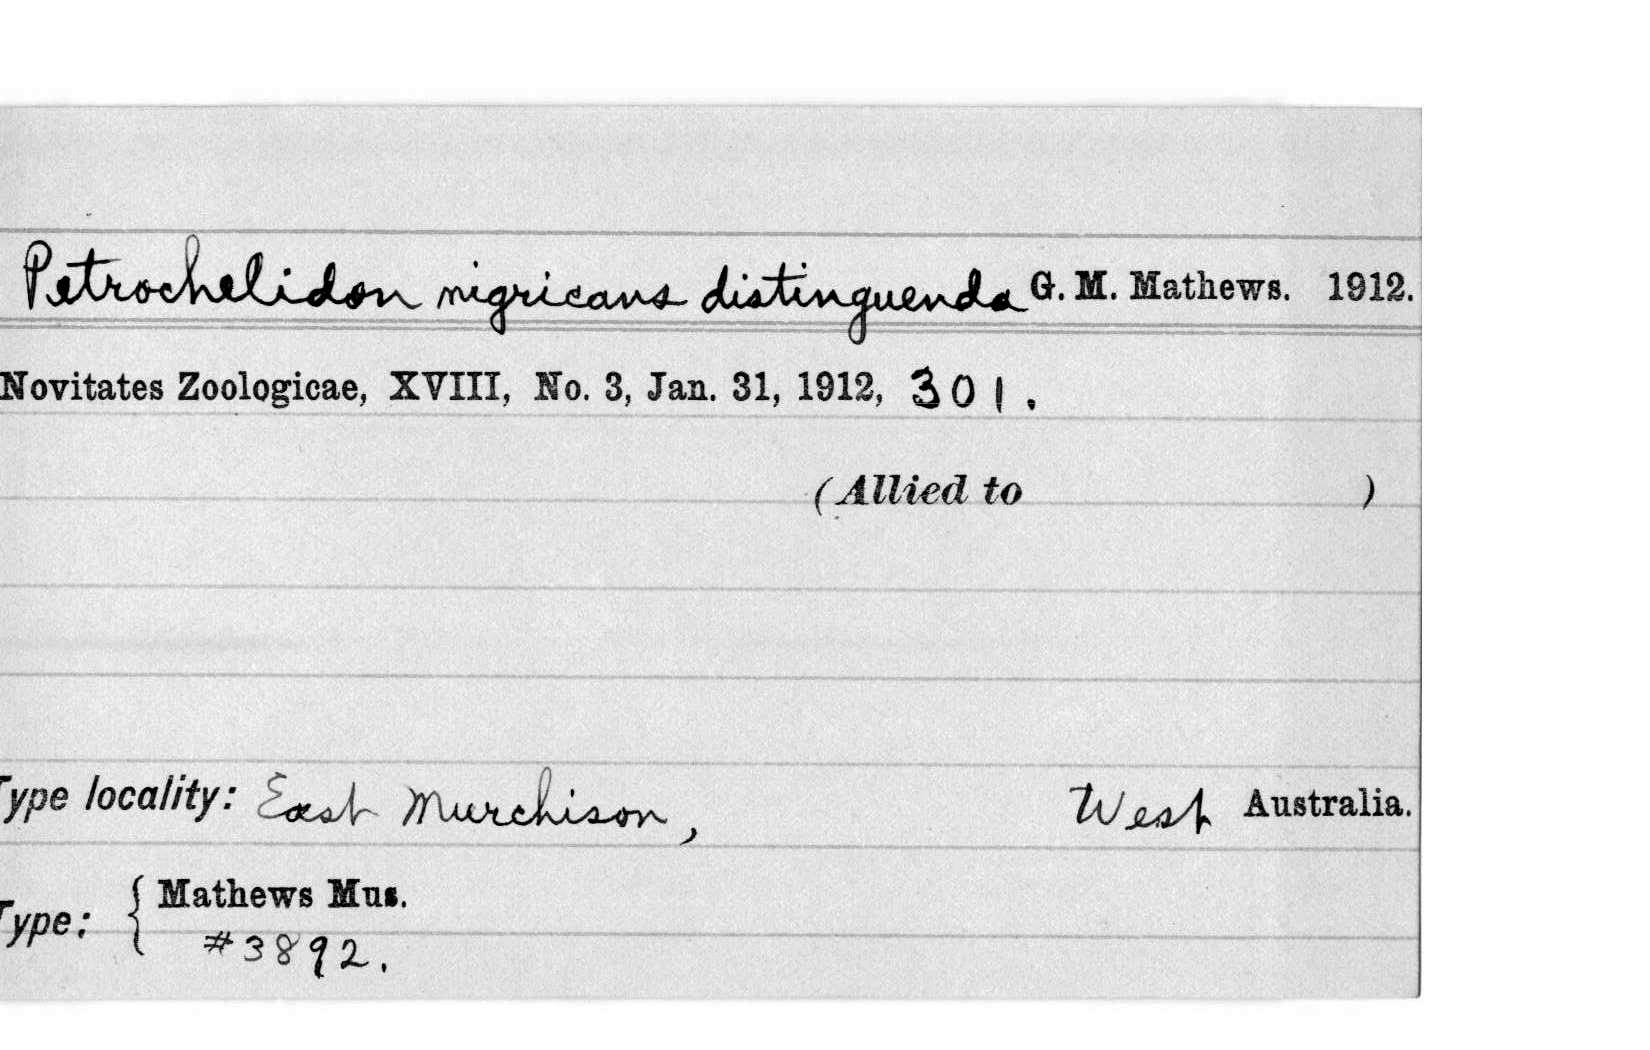 Petrochelidon nigricans distinguenda G. M. Mathews. 1912.
Novitates Zoologicae, XVIII, No. 3, Jan. 31, 1912, 301.
(Allied to )
Type locality: East Murchison, West Australia.
Type: { Mathews Mus.
#3892.